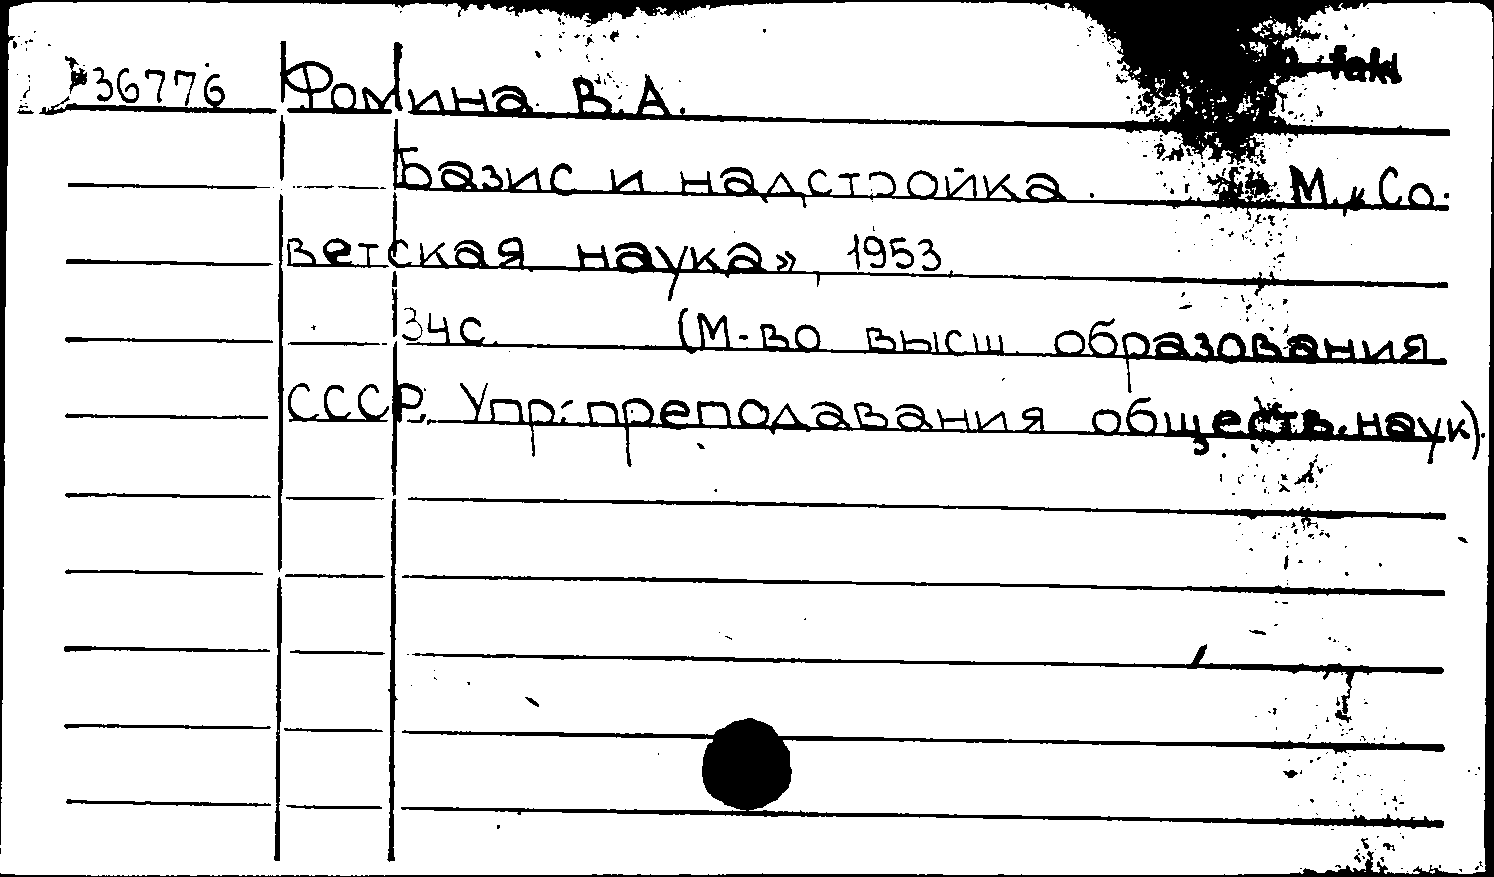 36776 Фомина В.А.
Базис и надстройка. М. „Со-
ветская наука», 1953.
34с. (М-во высш. образования
СССР. Упр. преподавания обществ. наук).